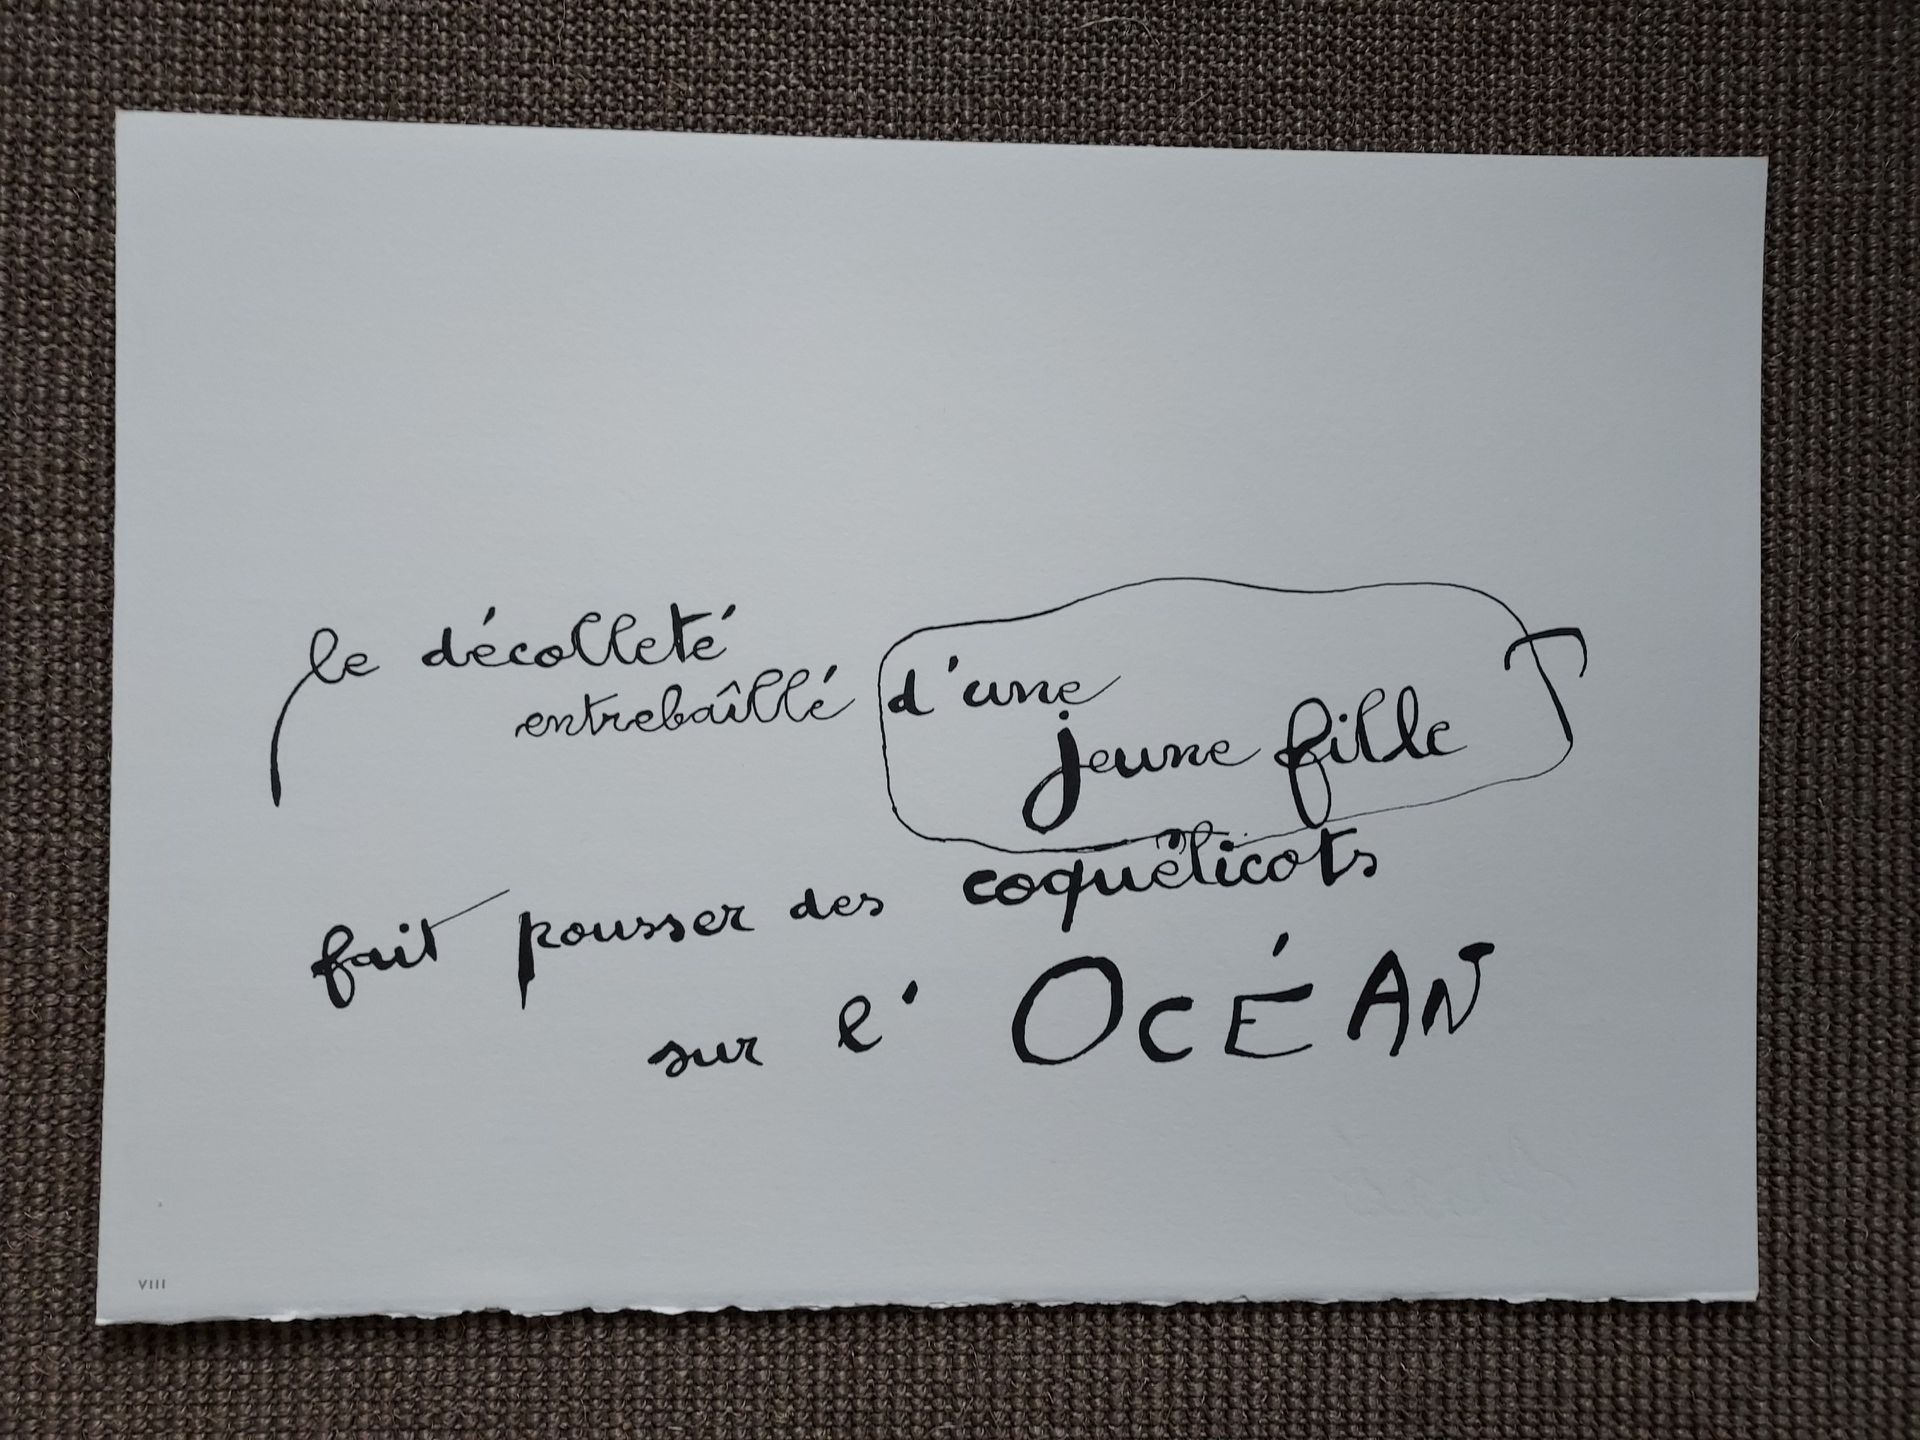 le décolleté
entrebaîllé d'une
jeune fille
fait pousser des coquélicots
sur l'OCÉAN
VIII